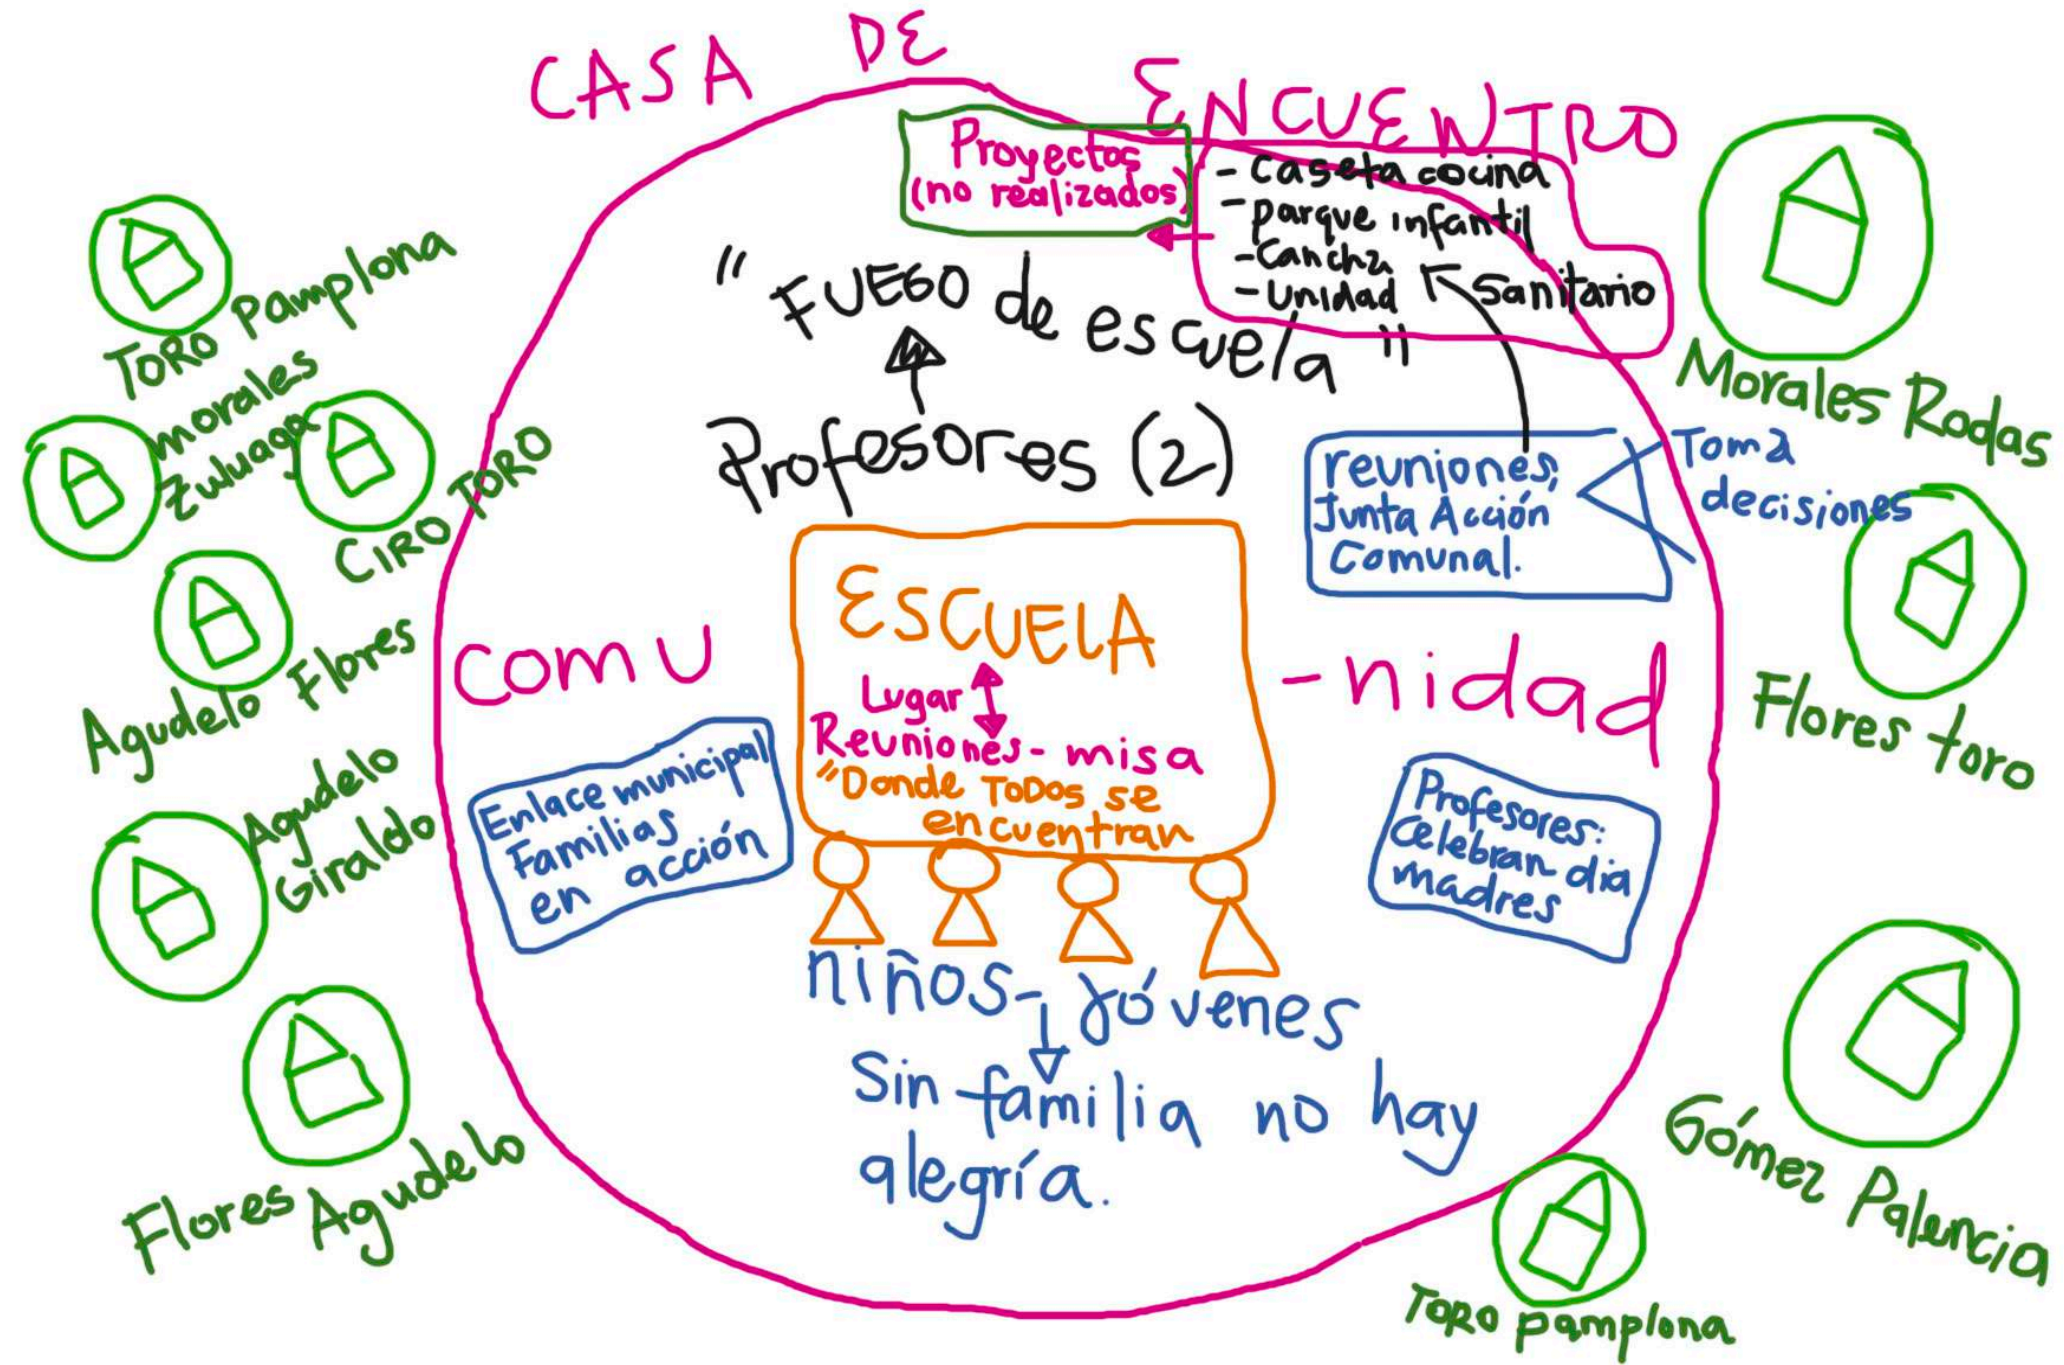 CASA DE ENCUENTRO
Proyectos
(no realizados)
- Caseta cocina
- parque infantil
- Cancha
- Unidad Sanitario
"FUEGO de escuela"
Profesores (2)
reuniones,
Junta Acción
Comunal.
Toma
decisiones
ESCUELA
Lugar
Reuniones- misa
"Donde TODOS se
encuentran
comu
-nidad
Enlace municipal
Familias
en acción
Profesores:
Celebran dia
madres
niños- jóvenes
Sin familia no hay
alegría.
TORO Pamplona
morales
Zuluaga
CIRO TORO
Agudelo Flores
Agudelo
Giraldo
Flores Agudelo
Morales Rodas
Flores toro
Gómez Palencia
TORO pamplona